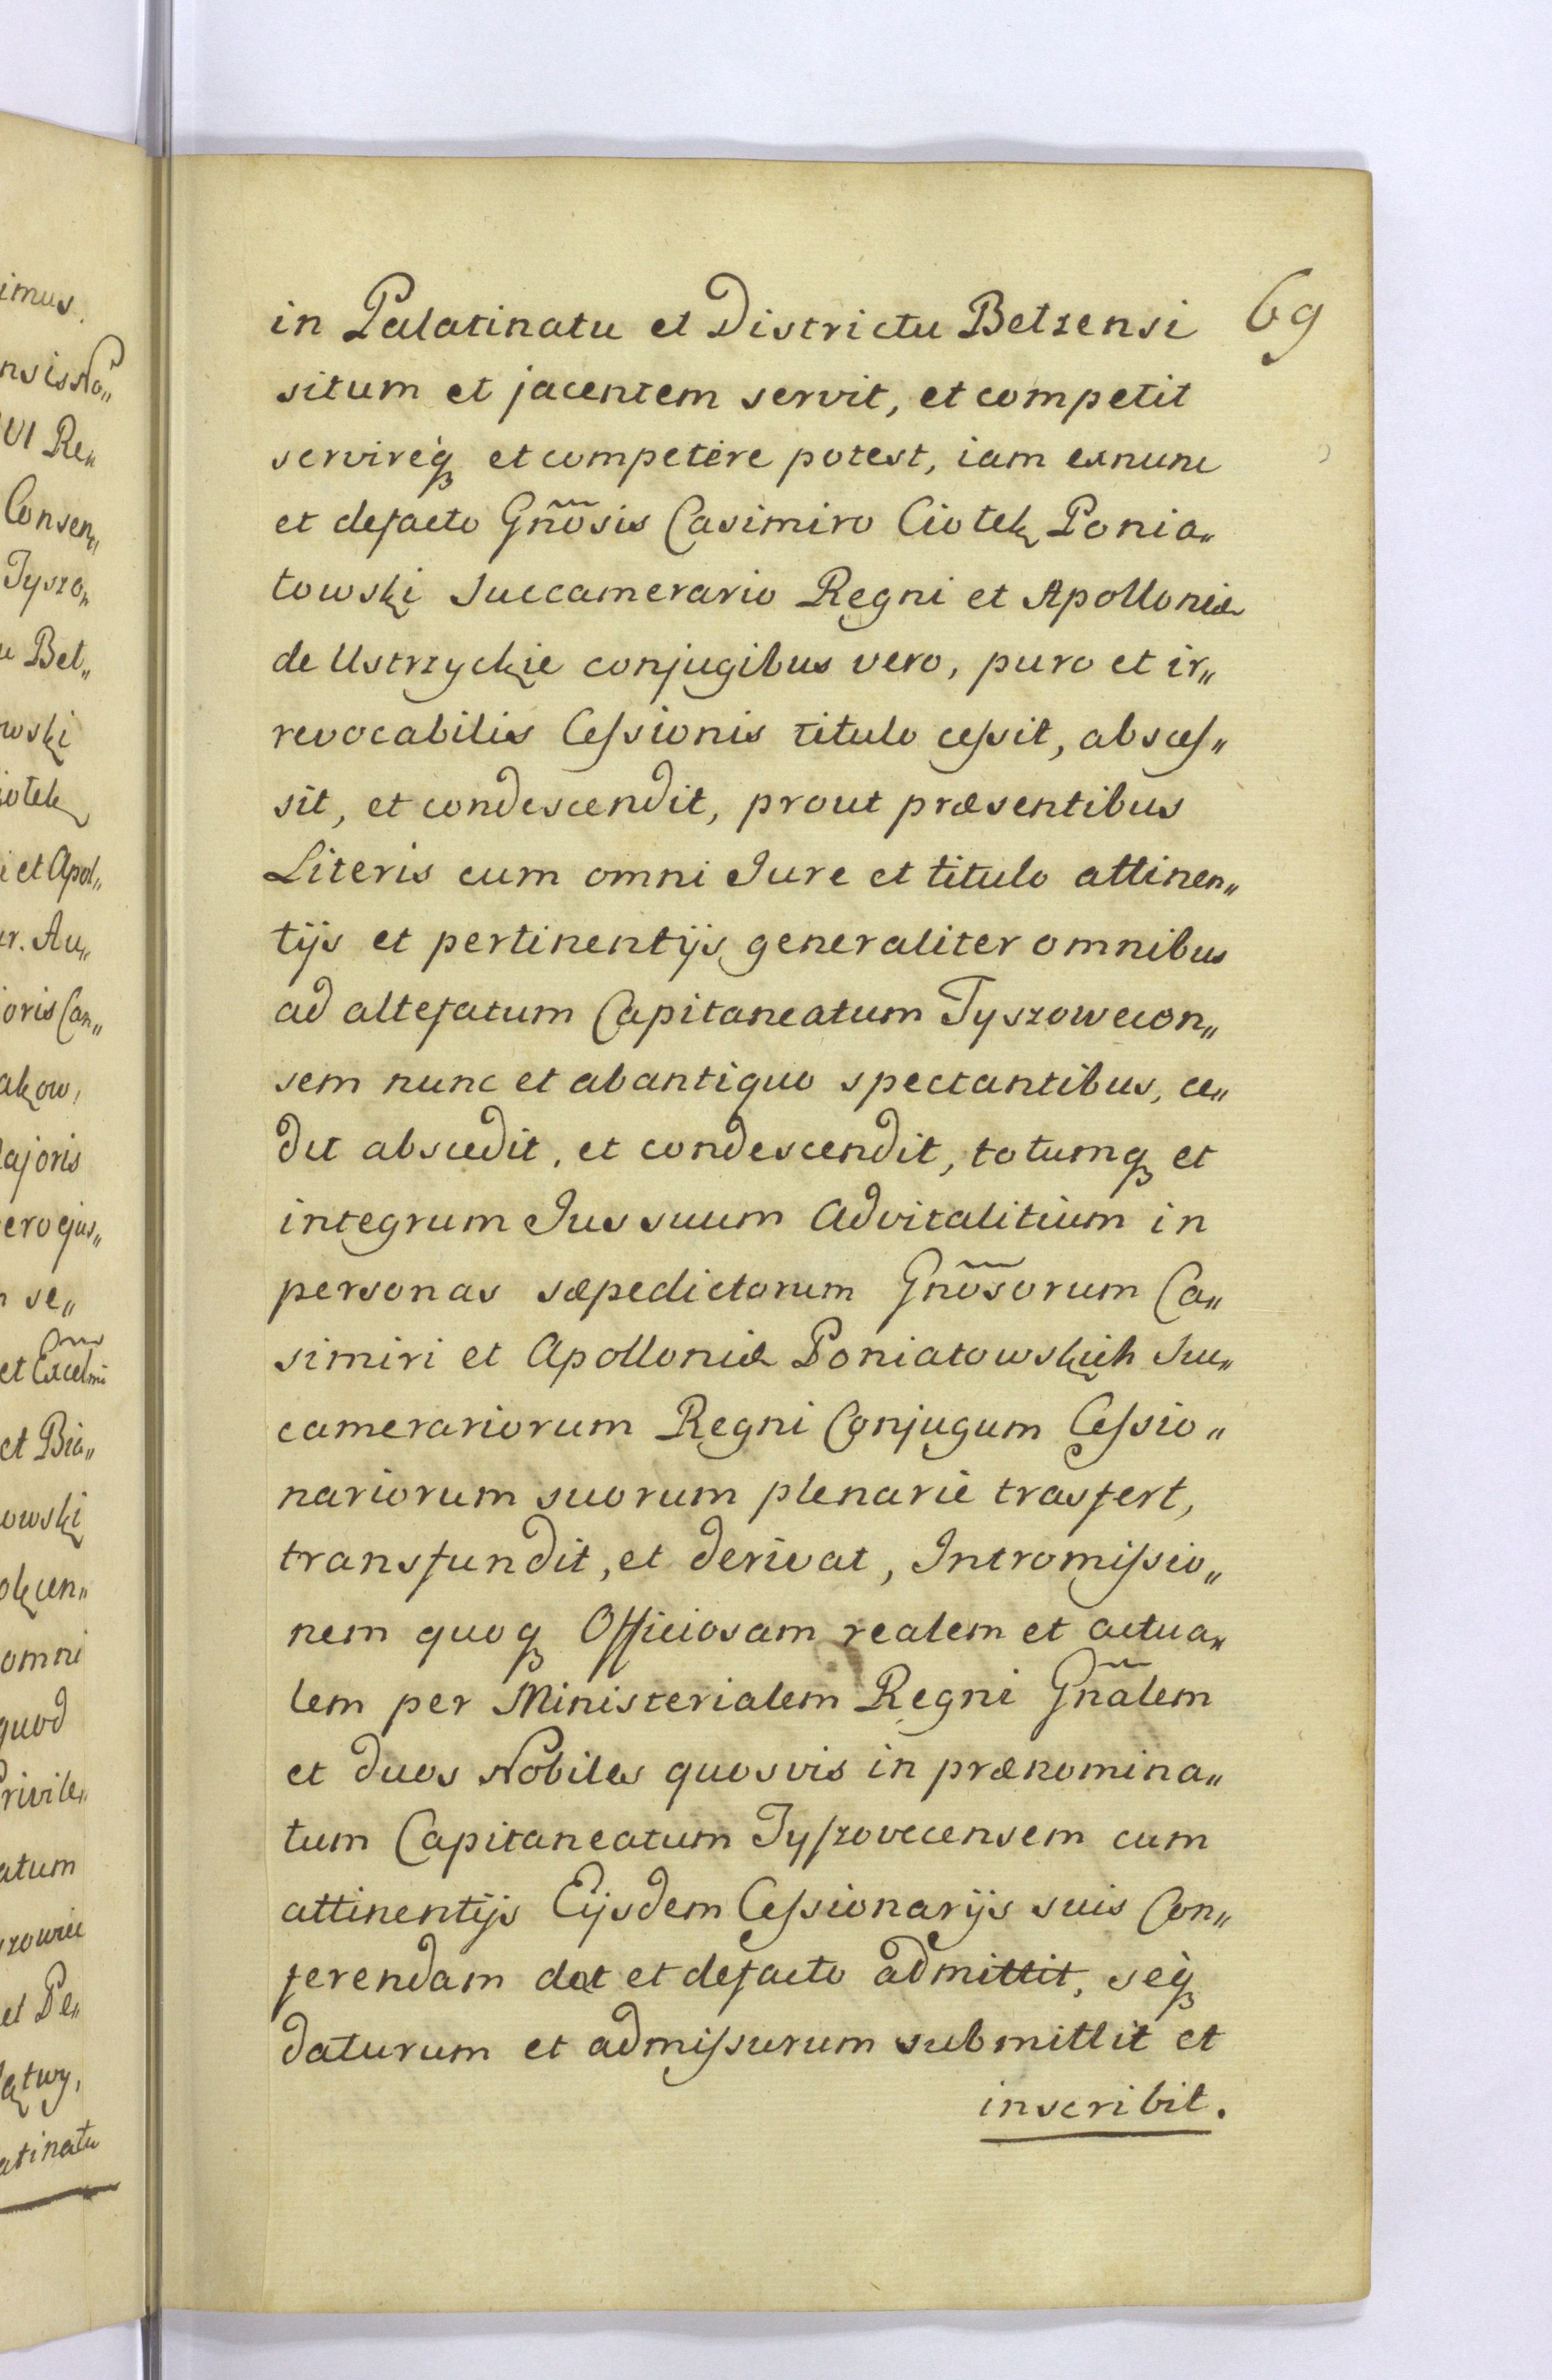 69
in Palatinatu et Districtu Belzensi
situm et jacentem servit, et competit
servireq́ꝫ et competere potest, iam exnunc
et defacto Gnõsis Casimiro Ciołek Ponia„
towski Succamerario Regni et Apolloniæ
de Ustrzyckie conjugibus vero, puro et ir„
revocabilis Cessionis titulo cessit, absces„
sit, et condescendit, prout præsentibus
Literis cum omni Jure et titulo attinen„
tijs et pertinentijs generaliter omnibus
ad altefatum Capitaneatum Tyszowecen„
sem nunc et abantiquo spectantibus, ce„
dit abscedit, et condescendit, totumqꝫ et
integrum Jus suum Advitalitium in
personas sæpedictorum Gnõsorum Ca„
simiri et Apolloniæ Poniatowskich Suc„
camerariorum Regni Conjugum Cessio„
nariorum suorum plenarie trasfert,
transfundit, et derivat, Intromissio„
nem quoqꝫ Officiosam realem et actua„
lem per Ministerialem Regni Gnãlem
et duos Nobiles quosvis in prænomina„
tum Capitaneatum Tyszovecensem cum
attinentijs Eijsdem Cessionarijs suis Con„
ferendam dat et defacto admittit, seq́ꝫ
daturum et admissurum submittit et
inscribit.
imus.
nsis No„
VI Re„
Consen„
Tyszo„
u Bel„
owski
iołek
i et Apol„
ur. Au„
oris Can„
akow,
ajoris
ero ejus„
n se„
et Excelmi
et Bia„
owski
okcen„
omni
quod
Privile„
atum
et Pe„
atinatu